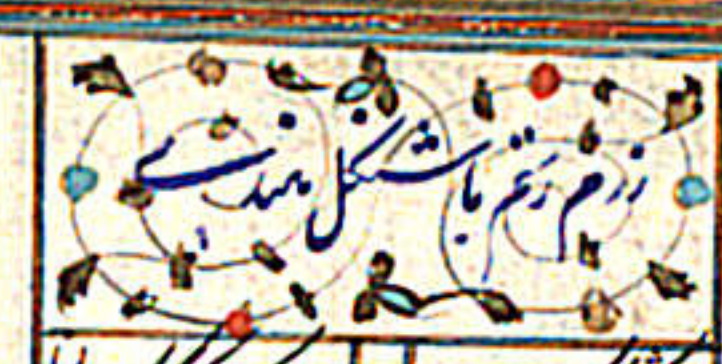 رزم رستم با شنگل هندی